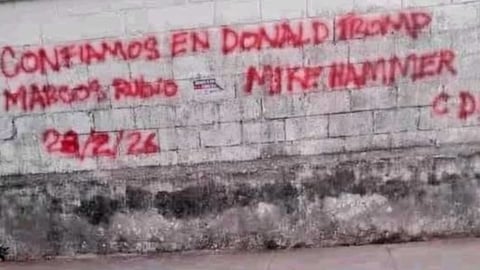 CONFIAMOS EN DONALD TROMP
MARCOS RUBIO MIKE HAMMER
C D
28/2/26